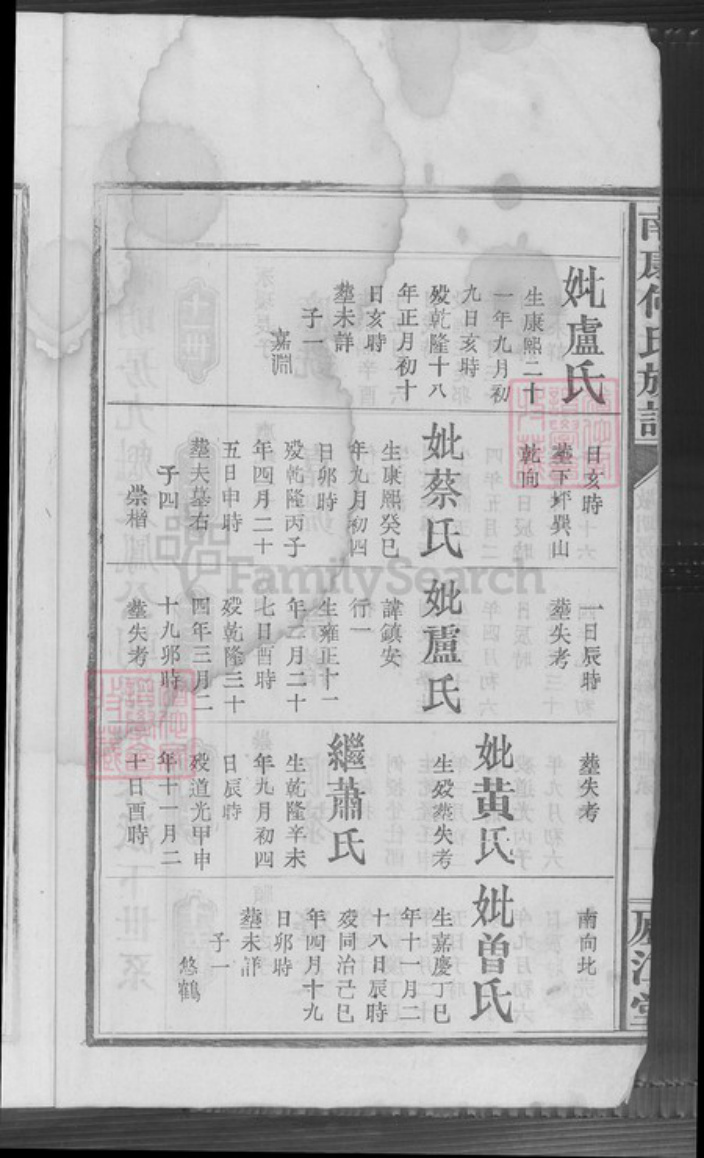 南康何氏族譜
廬江堂
妣盧氏
生康熙二十
一年九月初
九日亥時
歿乾隆十八
年正月初十
日亥時
塟未詳
子一
嘉淵
日亥時
塟下坪巽山
乾向
妣蔡氏
生康熙癸巳
年九月初四
日卯時
歿乾隆丙子
年四月二十
五日申時
塟夫墓右
子四
崇楷
一日辰時
塟失考
妣盧氏
諱鎮安
行一
生雍正十一
年二月二十
七日酉時
歿乾隆三十
四年三月二
十九卯時
塟失考
塟失考
妣黃氏
生歿塟失考
繼蕭氏
生乾隆辛未
年九月初四
日辰時
歿道光甲申
年十一月二
十日酉時
南向北
妣曾氏
生嘉慶丁巳
年十一月二
十八日辰時
歿同治己巳
年四月十九
日卯時
塟未詳
子一
悠鶴
FamilySearch